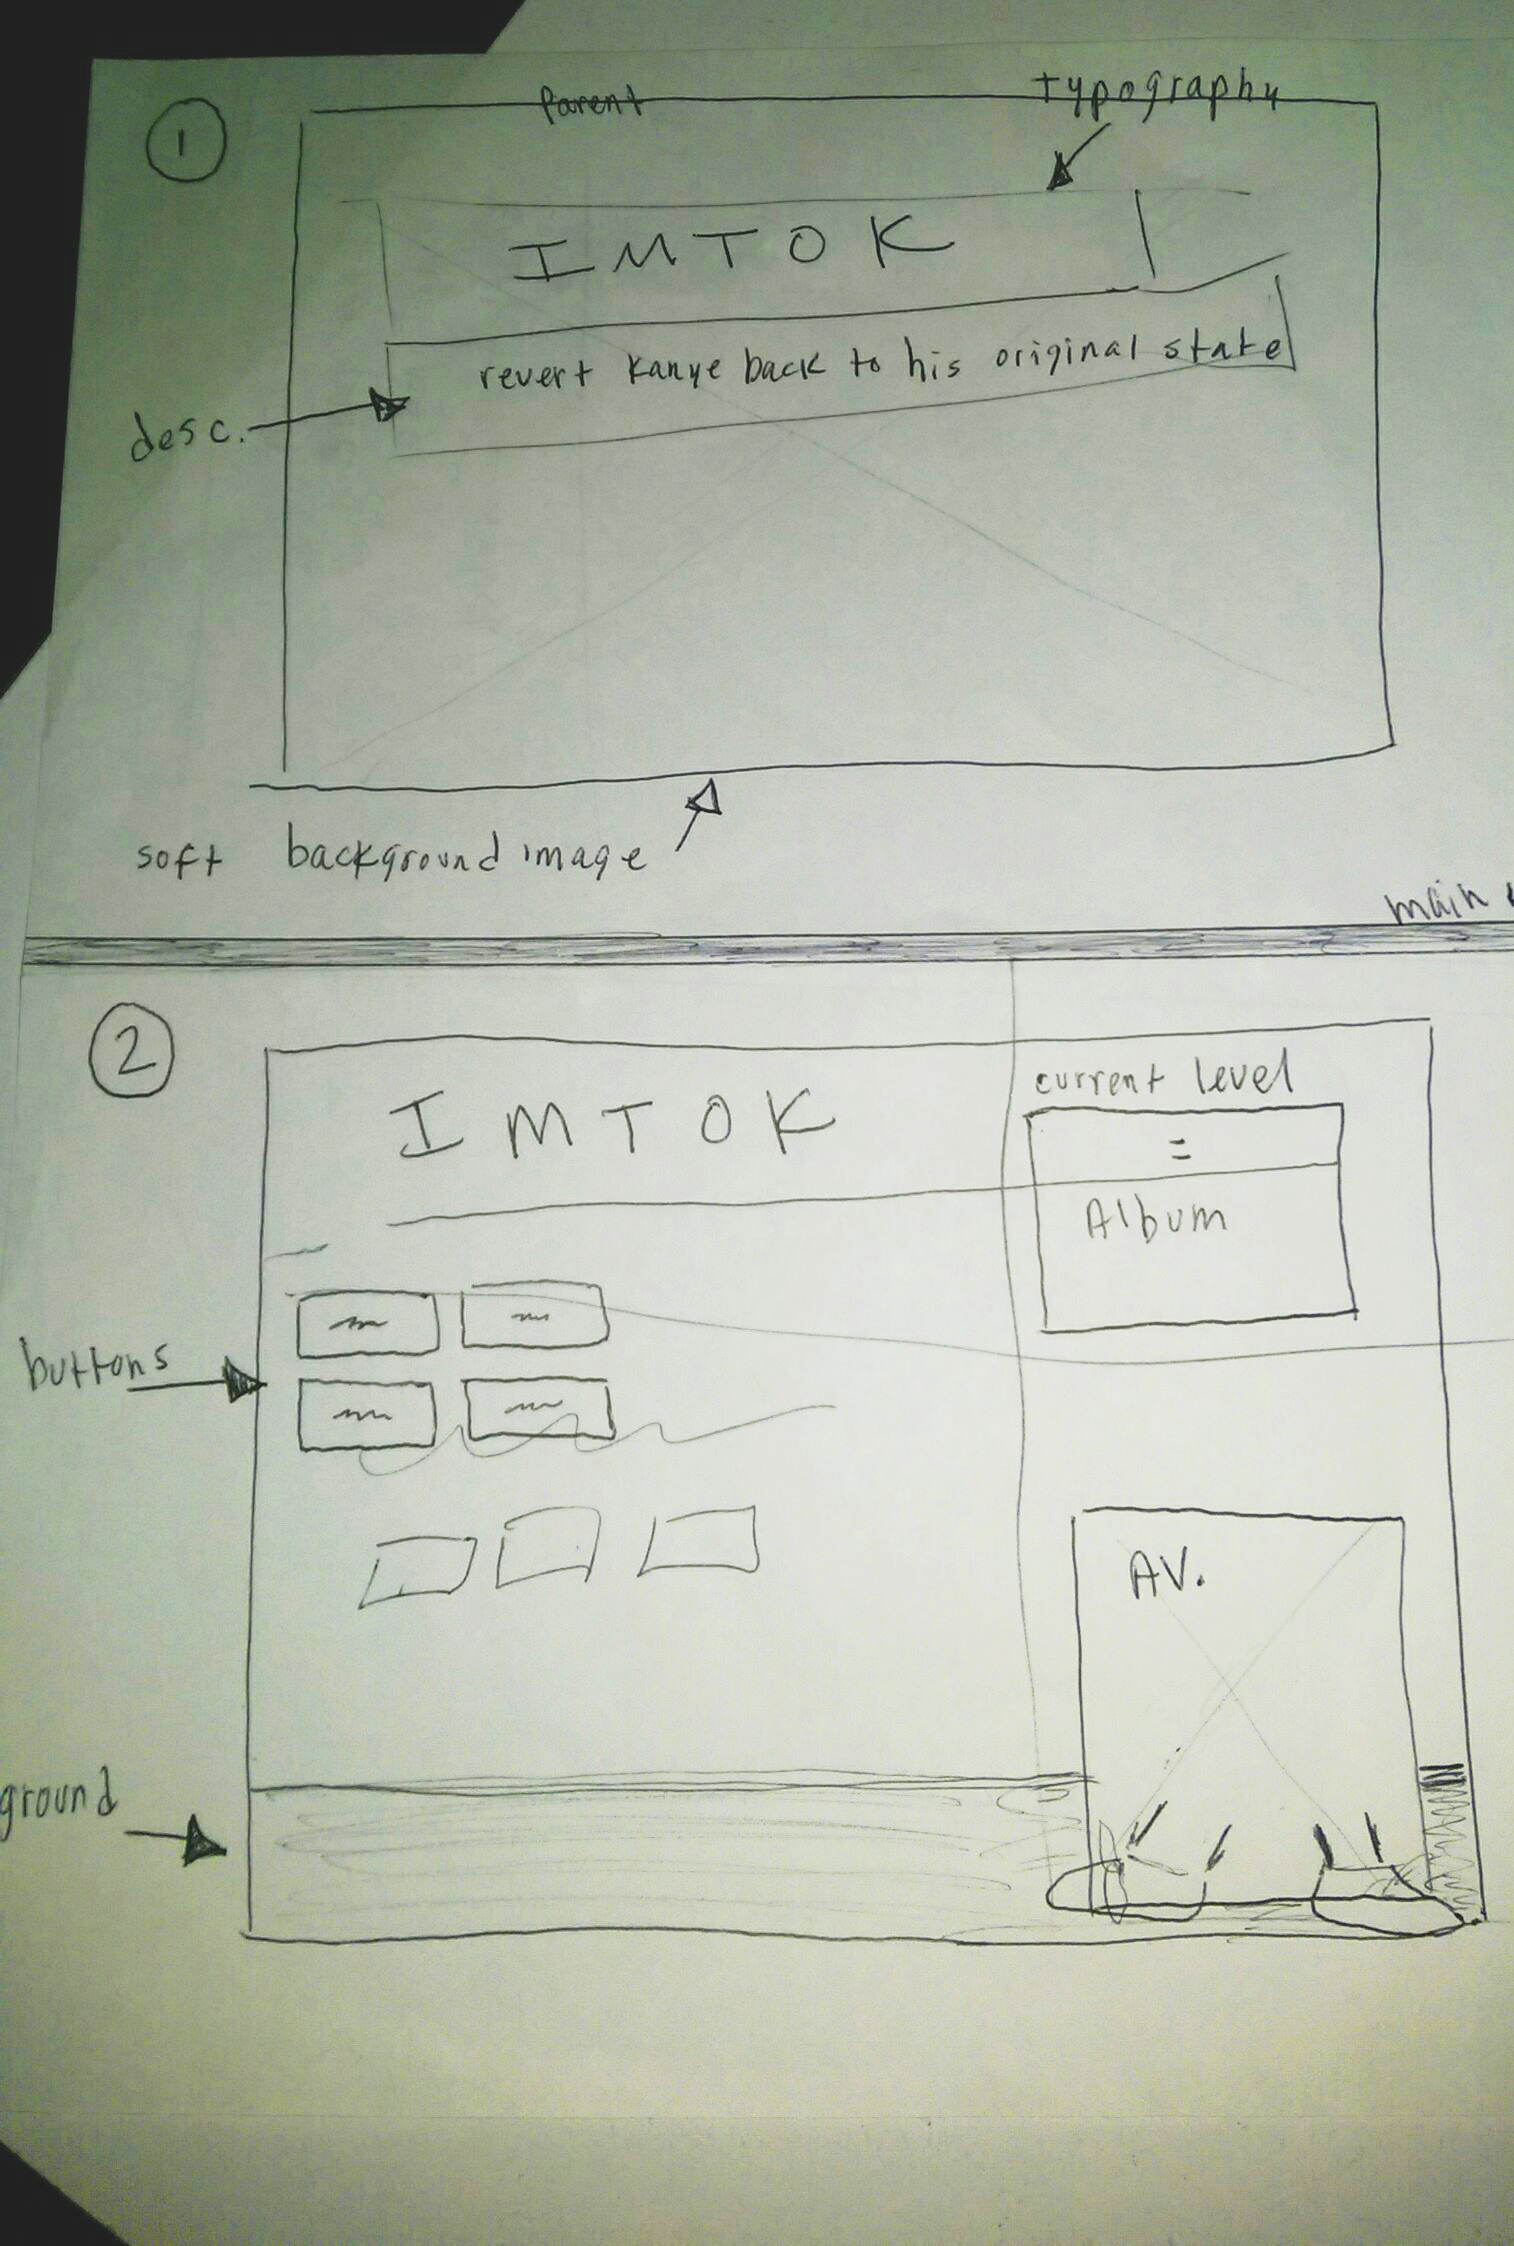 1
Parent
typography
IMTOK
revert kanye back to his original state
desc.
soft background image
main
2
current level
IMTOK
=
Album
buttons
AV.
ground